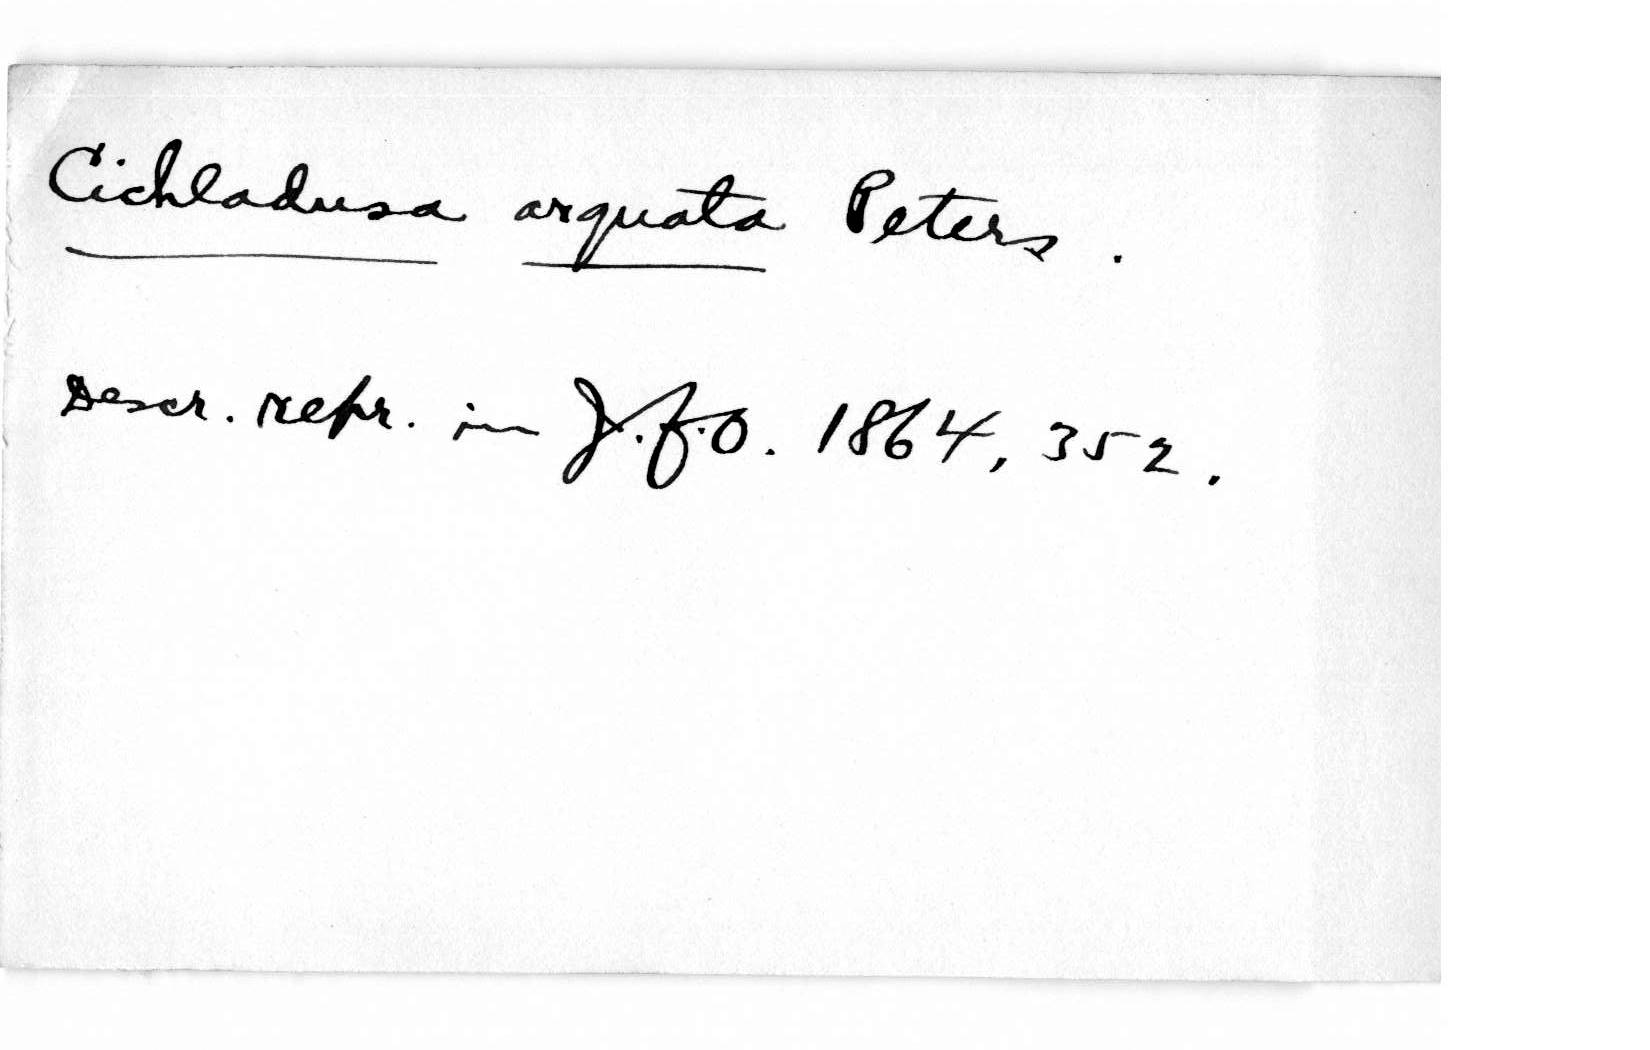 Cichladusa arquata Peters.
Descr. repr. in J.f.O. 1864, 352.